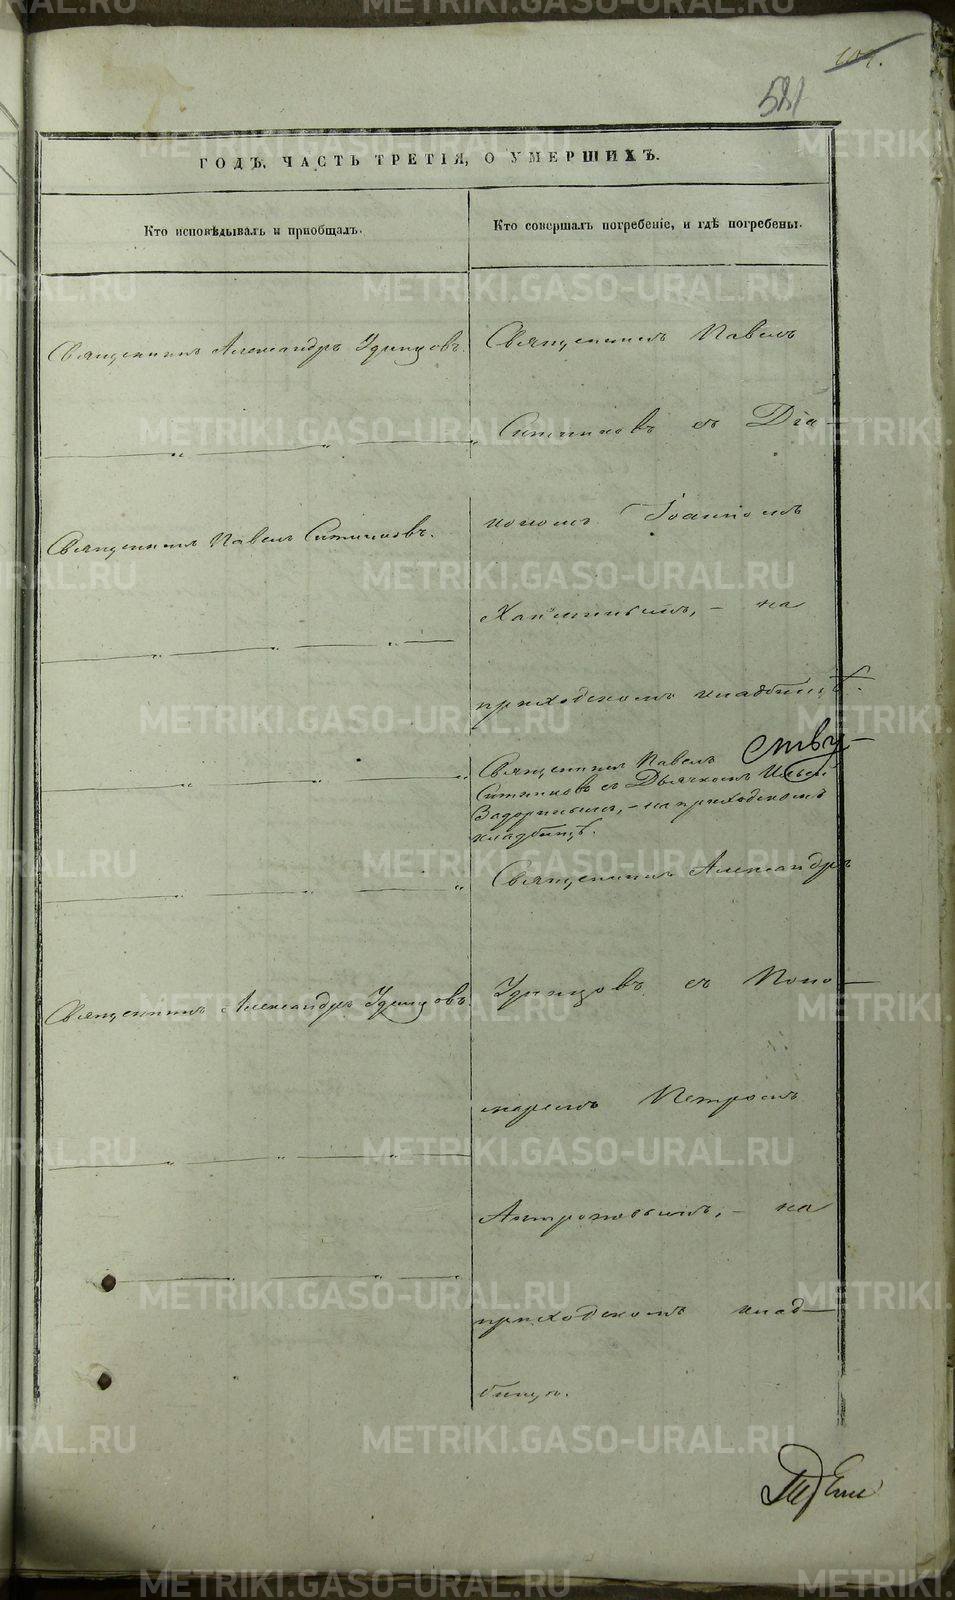 581
ГОДЪ, ЧАСТЬ ТРЕТІЯ, О УМЕРШИХЪ.
Кто исповѣдывалъ и пріобщалъ.
Кто совершалъ погребеніе, и гдѣ погребены.
Священникъ Александръ Удинцовъ.
Священникъ Павелъ Ситниковъ.
Священникъ Александръ Удинцовъ.
Священникъ Павелъ
Ситниковъ съ Діа-
кономъ Іоанномъ
на
приходскомъ кладбищѣ.
Священникъ Павелъ
Ситниковъ съ Дьячкомъ Ильей
Задоринымъ, - на приходскомъ
кладбищѣ.
Священникъ Александръ
Удинцовъ съ Поно-
маремъ Петромъ
Антроповымъ, - на
приходскомъ клад-
бищѣ.
METRIKI.GASO-URAL.RU